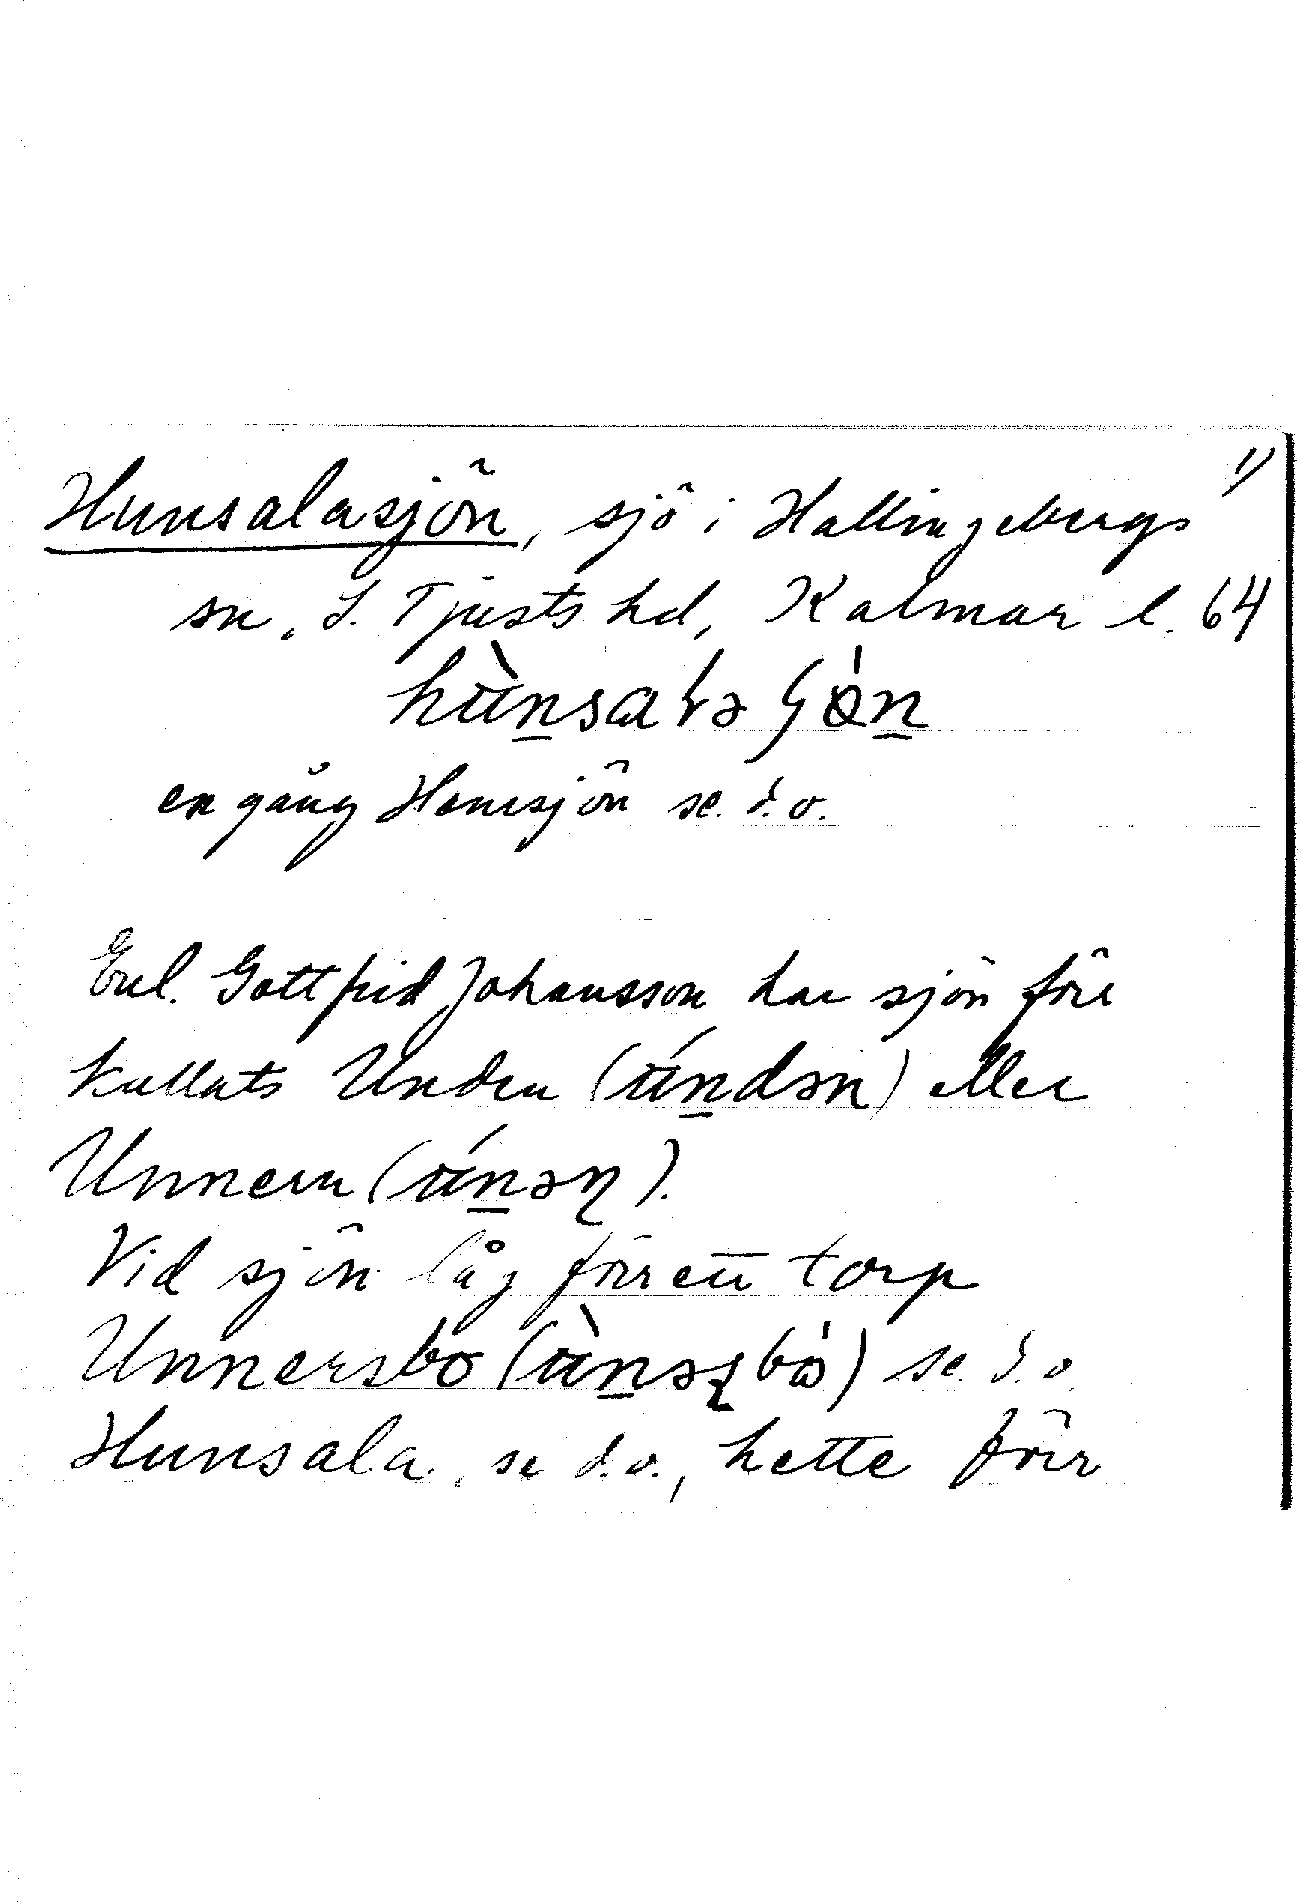 Hunsalasjön, sjö i Hallingebergs 1)
sn, S. Tjusts hd, Kalmar l. 64
hùnsalə ʃön
en gång Hemsjön se. d.o.
Enl. Gottfrid Johansson har sjön förr
kallats Unden (úndən) eller
Unnern (únəɳ).
Vid sjön låg förr ett torp
Unnersbo (ùnəʂbo) se. d.o
Hunsala, se d.o., hette förr